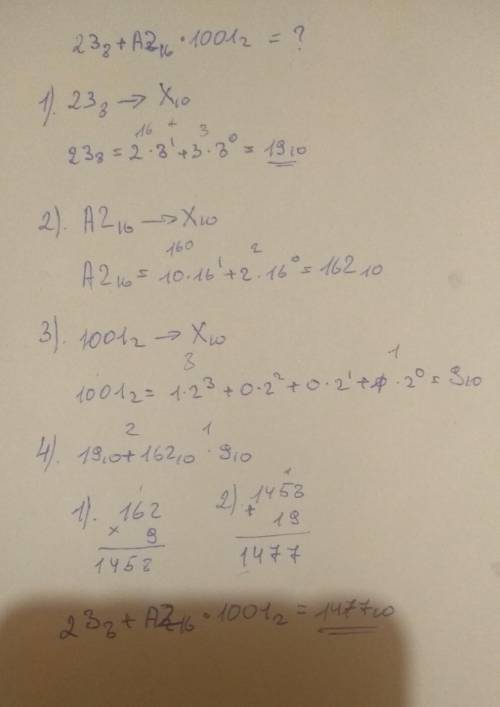 23₈ + A2₁₆ · 1001₂ = ?
1). 23₈ → X₁₀
16 + 3
23₈ = 2 · 8¹ + 3 · 8⁰ = 19₁₀
2). A2₁₆ → X₁₀
160 2
A2₁₆ = 10 · 16¹ + 2 · 16⁰ = 162₁₀
3). 1001₂ → X₁₀
8 1
1001₂ = 1 · 2³ + 0 · 2² + 0 · 2¹ + 1 · 2⁰ = 9₁₀
2 1
4). 19₁₀ + 162₁₀ · 9₁₀
1). 162 2) 1458
× 9 + 19
1458 1477
23₈ + A2₁₆ · 1001₂ = 1477₁₀